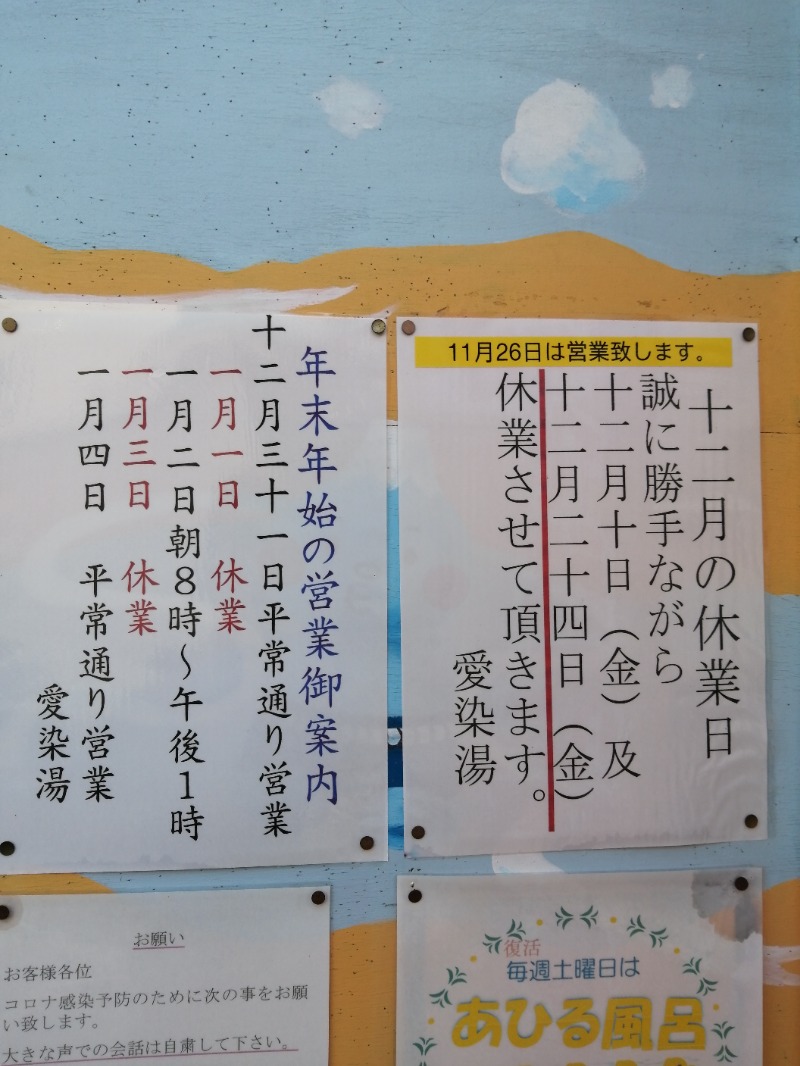 11月26日は営業致します。
十二月の休業日
誠に勝手ながら
十二月十日（金）及
十二月二十四日（金）
休業させて頂きます。
愛染湯
年末年始の営業御案内
十二月三十一日平常通り営業
一月一日 休業
一月二日朝8時～午後1時
一月三日 休業
一月四日 平常通り営業
愛染湯
お願い
お客様各位
コロナ感染予防のために次の事をお願
い致します。
大きな声での会話は自粛して下さい。
復活
毎週土曜日は
あひる風呂